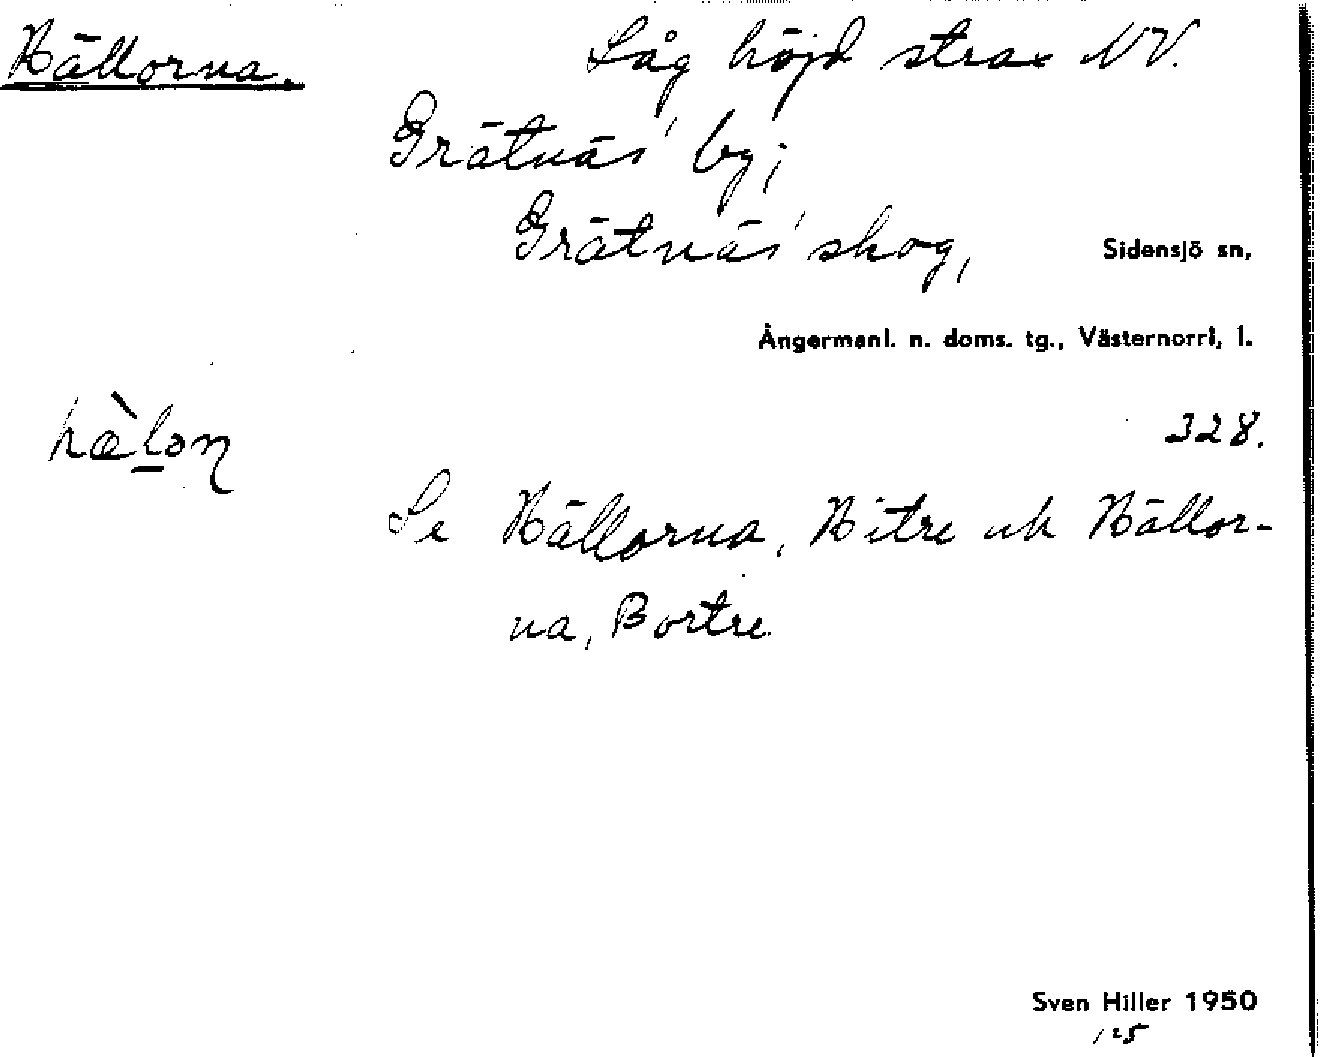 Hällorna.
Låg höjd strax NV.
Grätnäs' by;
Grätnäs' skog,
Sidensjö sn,
Ångermanl. n. doms. tg., Västernorrl, l.
hæ̀lon
328.
Se Hällorna, Hitre och Hällor-
na, Bortre
Sven Hiller 1950
125